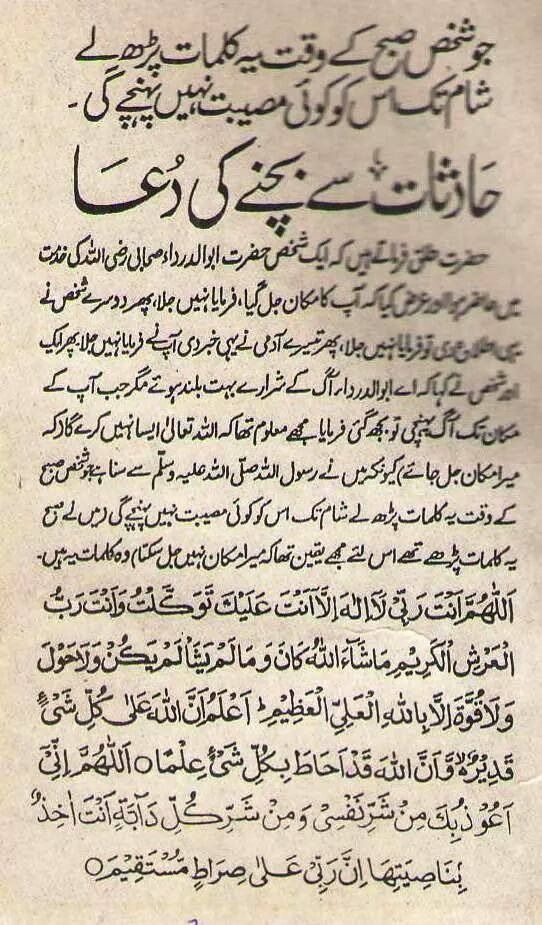 جو شخص صبح کے وقت یہ کلمات پڑھ لے
شام تک اس کو کوئی مصیبت نہیں پہنچے گی۔
حادثات سے بچنے کی دُعا
حضرت طلق فرماتے ہیں کہ ایک شخص حضرت ابوالدرداء صحابی رضی اللہ کی خدمت
میں حاضر ہوا اور عرض کیا کہ آپ کا مکان جل گیا، فرمایا نہیں جلا، پھر دوسرے شخص نے
یہی اطلاع دی تو فرمایا نہیں جلا، پھر تیسرے آدمی نے یہی خبر دی آپ نے فرمایا نہیں جلا، پھر ایک
اور شخص نے کہا کہ اے ابوالدرداء آگ کے شرارے بہت بلند ہوئے مگر جب آپ کے
مکان تک آگ پہنچی تو بجھ گئی فرمایا مجھے معلوم تھا کہ اللہ تعالیٰ ایسا نہیں کرے گا (کہ
میرا مکان جل جائے) کیونکہ میں نے رسول اللہ صلی اللہ علیہ وسلم سے سنا ہے جو شخص صبح
کے وقت یہ کلمات پڑھ لے شام تک اس کو کوئی مصیبت نہیں پہنچے گی (میں نے صبح
یہ کلمات پڑھے تھے اس لئے مجھے یقین تھا کہ میرا مکان نہیں جل سکتا) وہ کلمات یہ ہیں۔
اَللّٰهُمَّ اَنْتَ رَبِّيْ لَا اِلٰهَ اِلَّا اَنْتَ عَلَيْكَ تَوَكَّلْتُ وَاَنْتَ رَبُّ
الْعَرْشِ الْكَرِيْمِ مَاشَآءَ اللّٰهُ كَانَ وَمَا لَمْ يَشَأْ لَمْ يَكُنْ وَلَا حَوْلَ
وَلَا قُوَّةَ اِلَّا بِاللّٰهِ الْعَلِيِّ الْعَظِيْمِ ؕ اَعْلَمُ اَنَّ اللّٰهَ عَلٰى كُلِّ شَيْءٍ
قَدِيْرٌ وَّاَنَّ اللّٰهَ قَدْ اَحَاطَ بِكُلِّ شَيْءٍ عِلْمًا ○ اَللّٰهُمَّ اِنِّيْ
اَعُوْذُ بِكَ مِنْ شَرِّ نَفْسِيْ وَمِنْ شَرِّ كُلِّ دَآبَّةٍ اَنْتَ اٰخِذٌ
بِنَاصِيَتِهَا اِنَّ رَبِّيْ عَلٰى صِرَاطٍ مُّسْتَقِيْمٍ ○